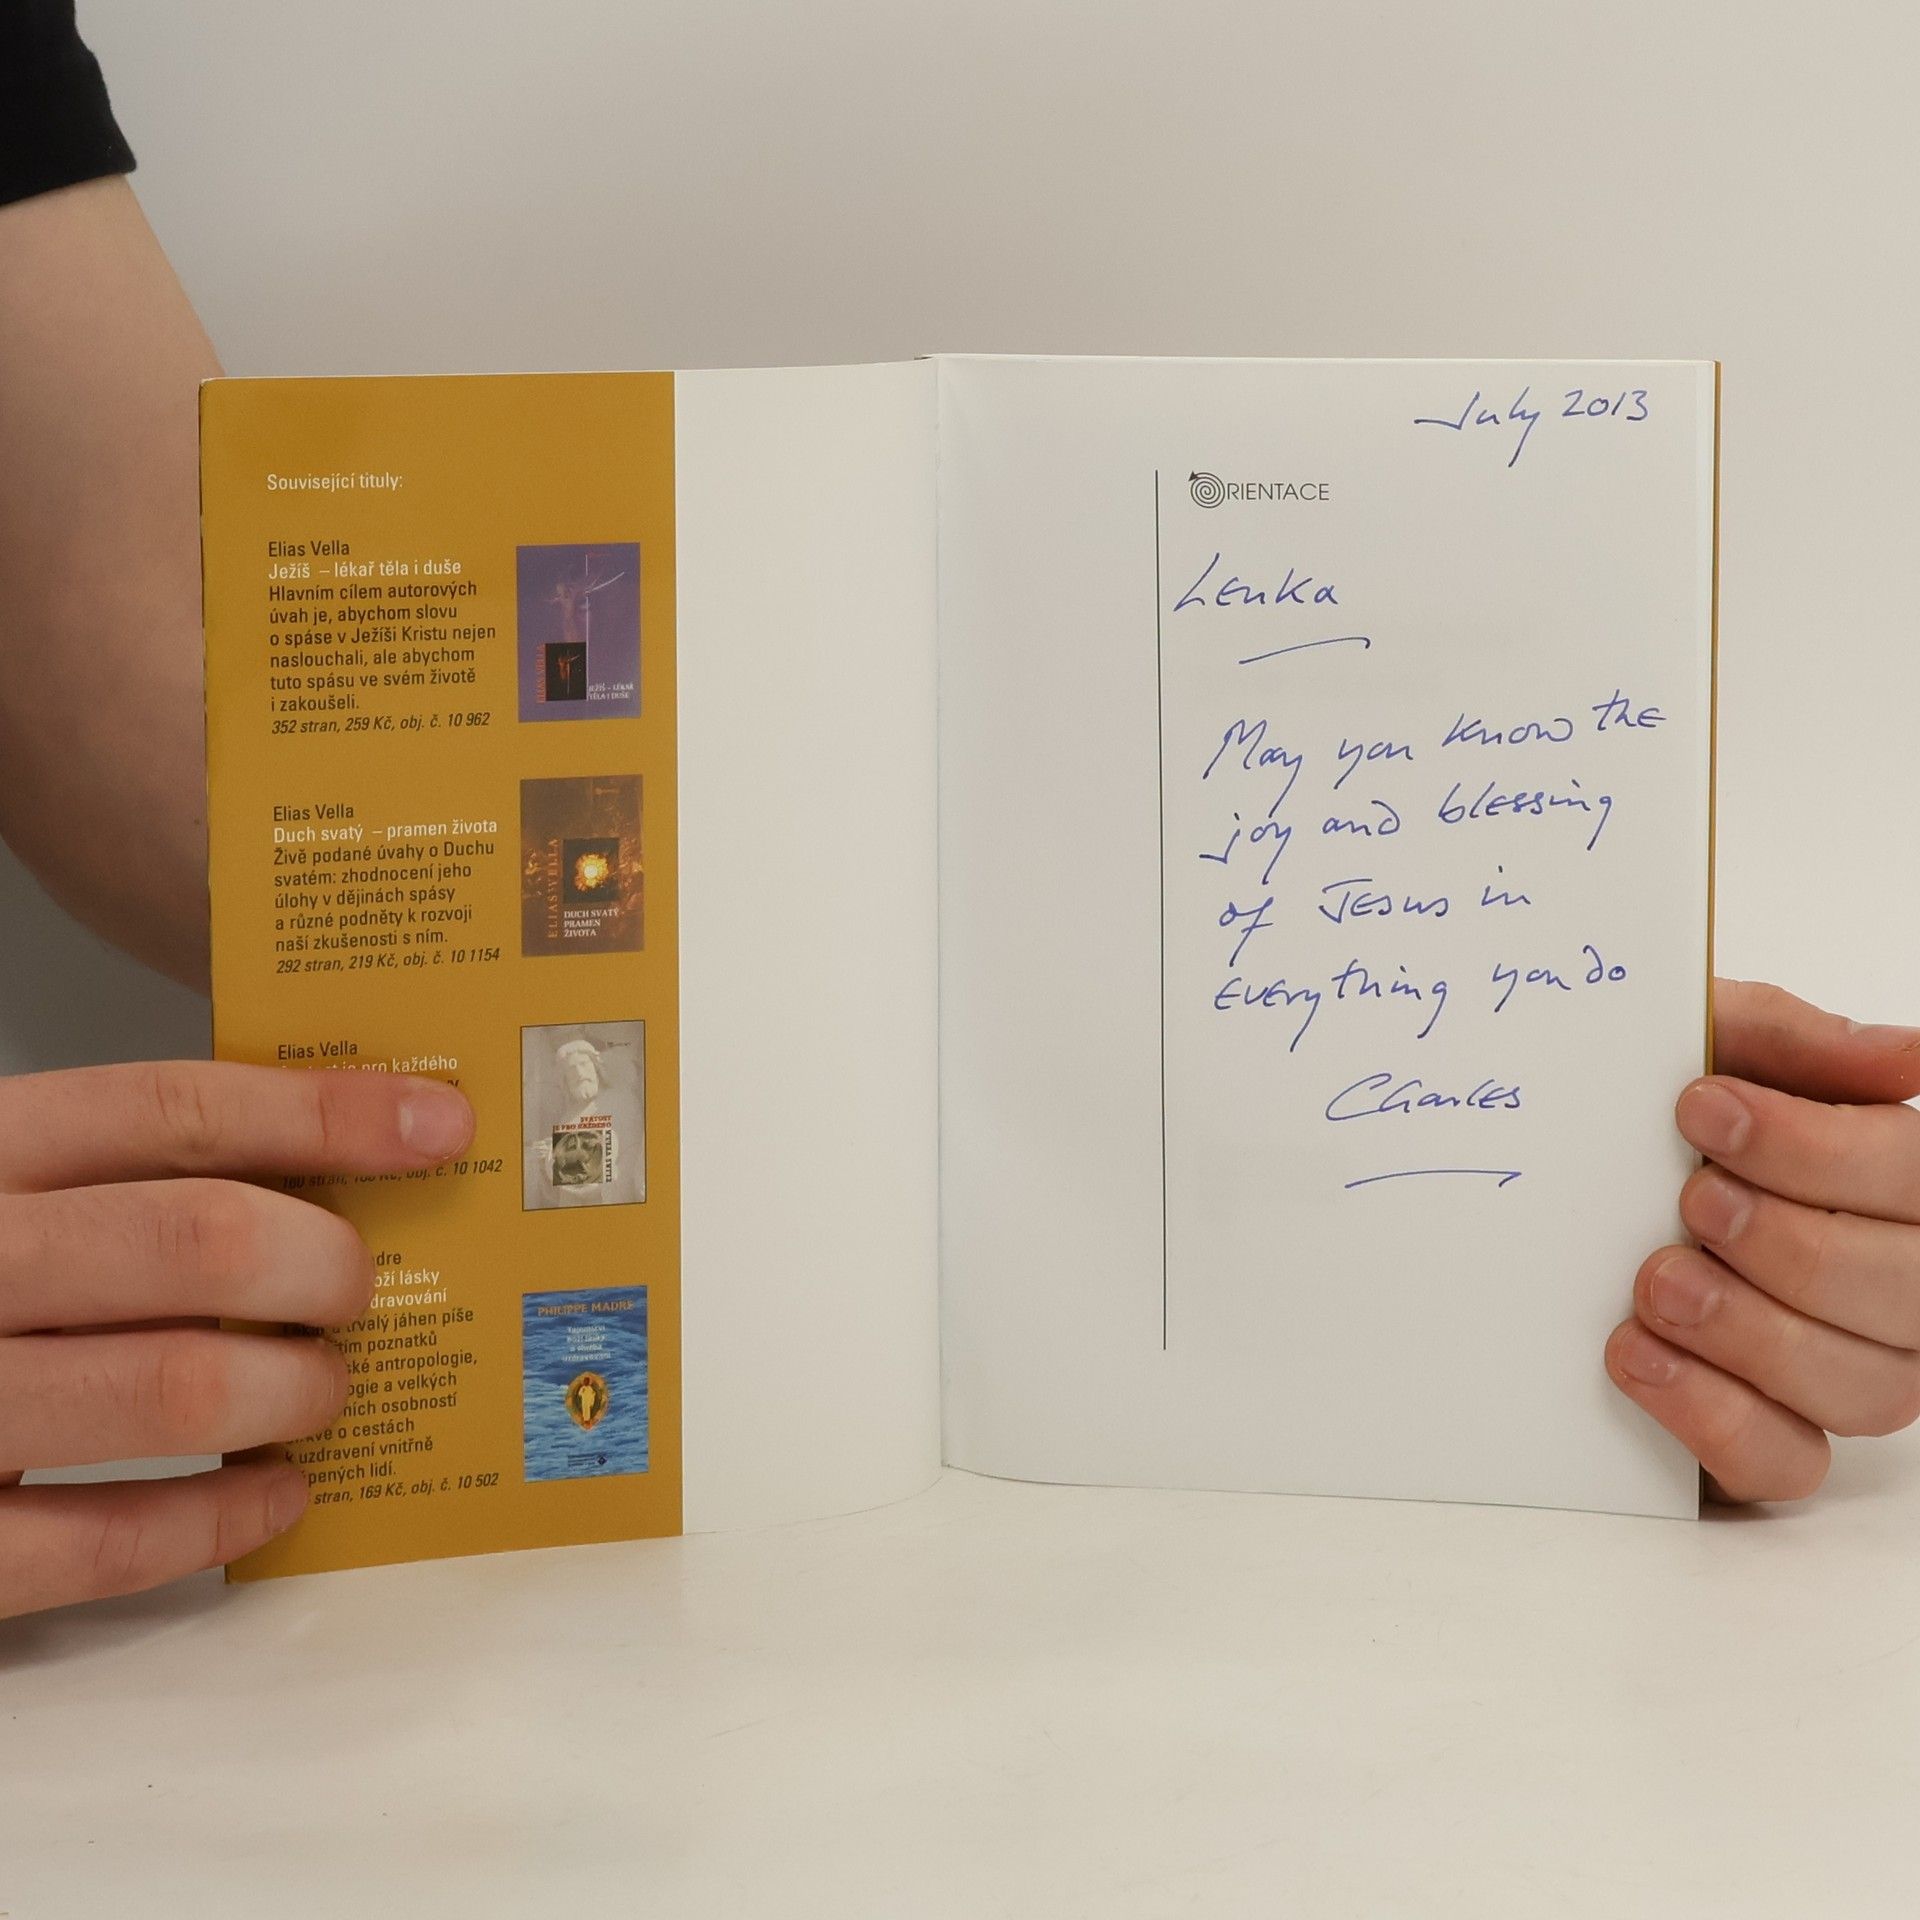 Související tituly:
Elias Vella
Ježíš – lékař těla i duše
Hlavním cílem autorových
úvah je, abychom slovu
o spáse v Ježíši Kristu nejen
naslouchali, ale abychom
tuto spásu ve svém životě
i zakoušeli.
352 stran, 259 Kč, obj. č. 10 962
ELIAS VELLA
JEŽÍŠ – LÉKAŘ
TĚLA I DUŠE
Elias Vella
Duch svatý – pramen života
Živě podané úvahy o Duchu
svatém: zhodnocení jeho
úlohy v dějinách spásy
a různé podněty k rozvoji
naší zkušenosti s ním.
292 stran, 219 Kč, obj. č. 10 1154
ELIAS VELLA
DUCH SVATÝ –
PRAMEN
ŽIVOTA
Elias Vella
je pro každého
160 stran, obj. č. 10 1042
SVATOST
JE PRO KAŽDÉHO
ELIAS VELLA
lásky
trvalý jáhen píše
poznatků
antropologie,
a velkých
osobností
o cestách
k uzdravení vnitřně
lidí.
stran, 169 Kč, obj. č. 10 502
PHILIPPE MADRE
Tajemství
Boží lásky
a služba
uzdravování
July 2013
ORIENTACE
Lenka
May you know the
joy and blessing
of Jesus in
everything you do
Charles